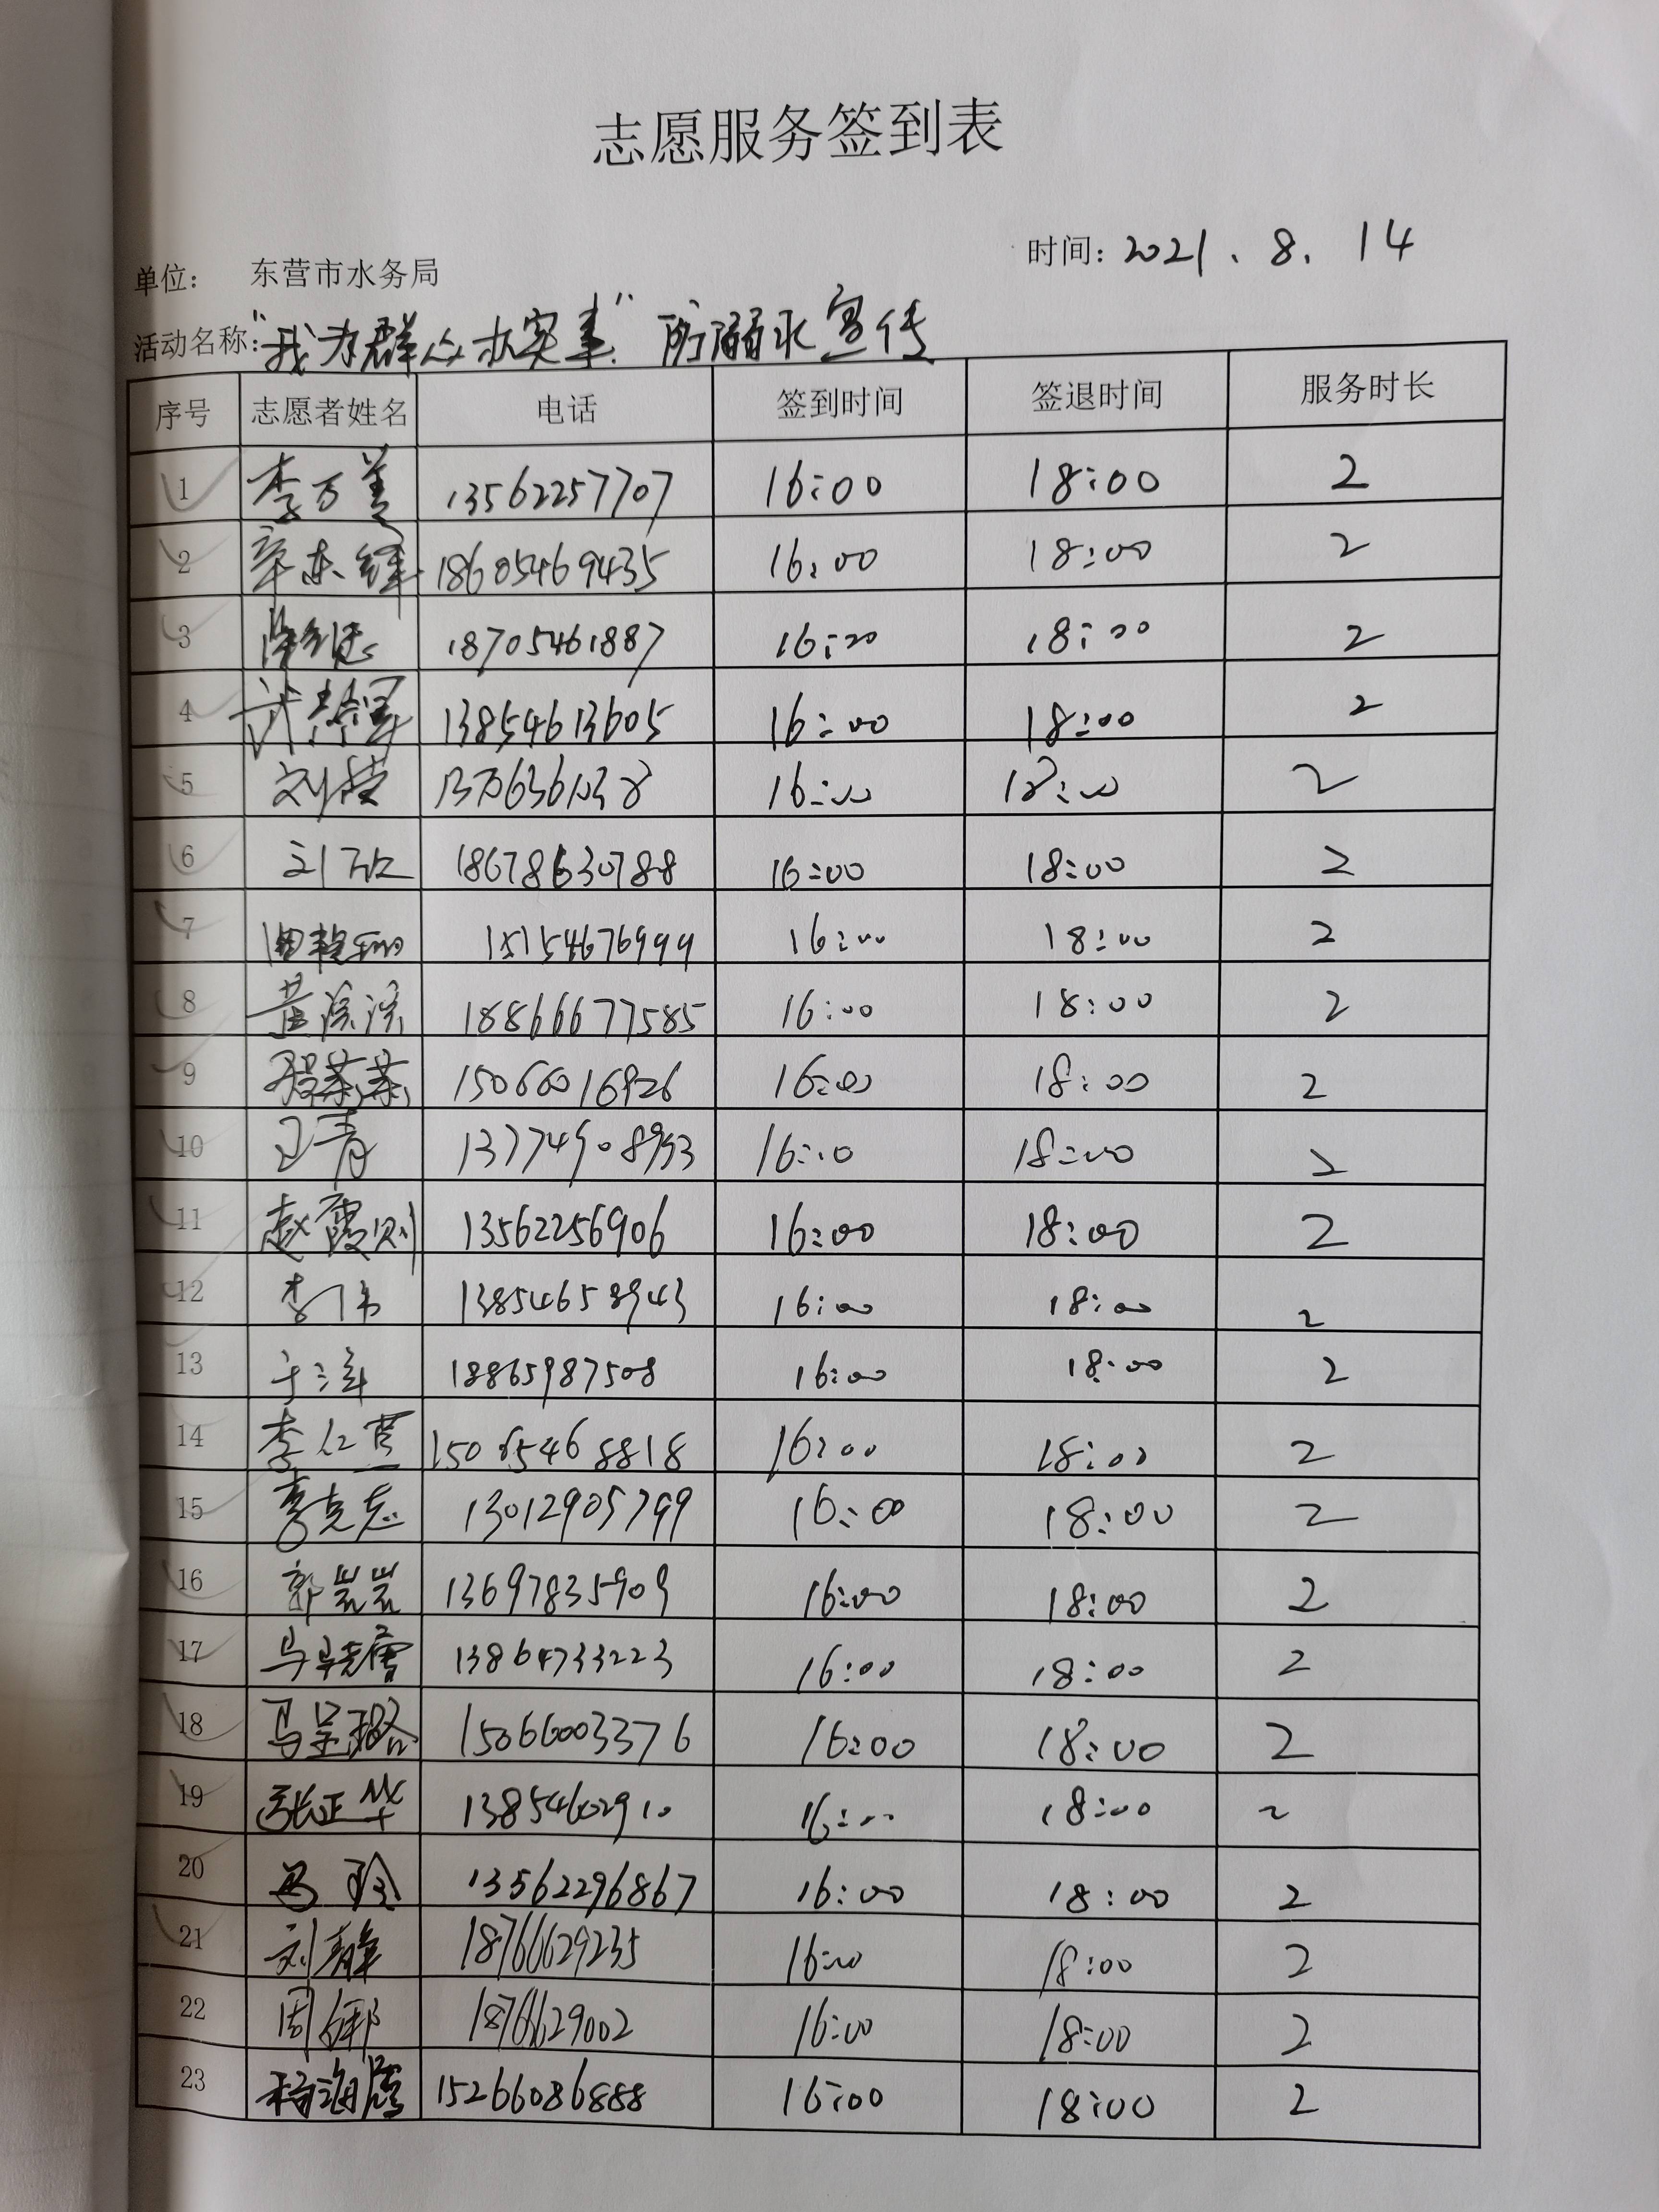 志愿服务签到表
时间: 2021.8.14
单位: 东营市水务局
活动名称: "我为群众办实事" 防溺水宣传
序号 志愿者姓名 电话 签到时间 签退时间 服务时长
1 李万善 13562257707 16:00 18:00 2
2 辛东辉 18605469435 16:00 18:00 2
3 18705461887 16:00 18:00 2
4 13854613605 16:00 18:00 2
5 16:00 18:00 2
6 刘欣 18678630788 16:00 18:00 2
7 15154676999 16:00 18:00 2
8 黄滨滨 18866677585 16:00 18:00 2
9 殷燕燕 15066016926 16:00 18:00 2
10 卫青 13774908993 16:00 18:00 2
11 赵霞则 13562256906 16:00 18:00 2
12 李伟 13854658943 16:00 18:00 2
13 于海 18865987508 16:00 18:00 2
14 李仁营 15065468818 16:00 18:00 2
15 李克志 13012905799 16:00 18:00 2
16 郭岩岩 13697835909 16:00 18:00 2
17 13864733223 16:00 18:00 2
18 马呈璐 15066003376 16:00 18:00 2
19 张正华 13854602910 16:00 18:00 2
20 马玲 13562296867 16:00 18:00 2
21 刘静 18766629235 16:00 18:00 2
22 周 18766629002 16:00 18:00 2
23 杨海鹰 15266086888 16:00 18:00 2